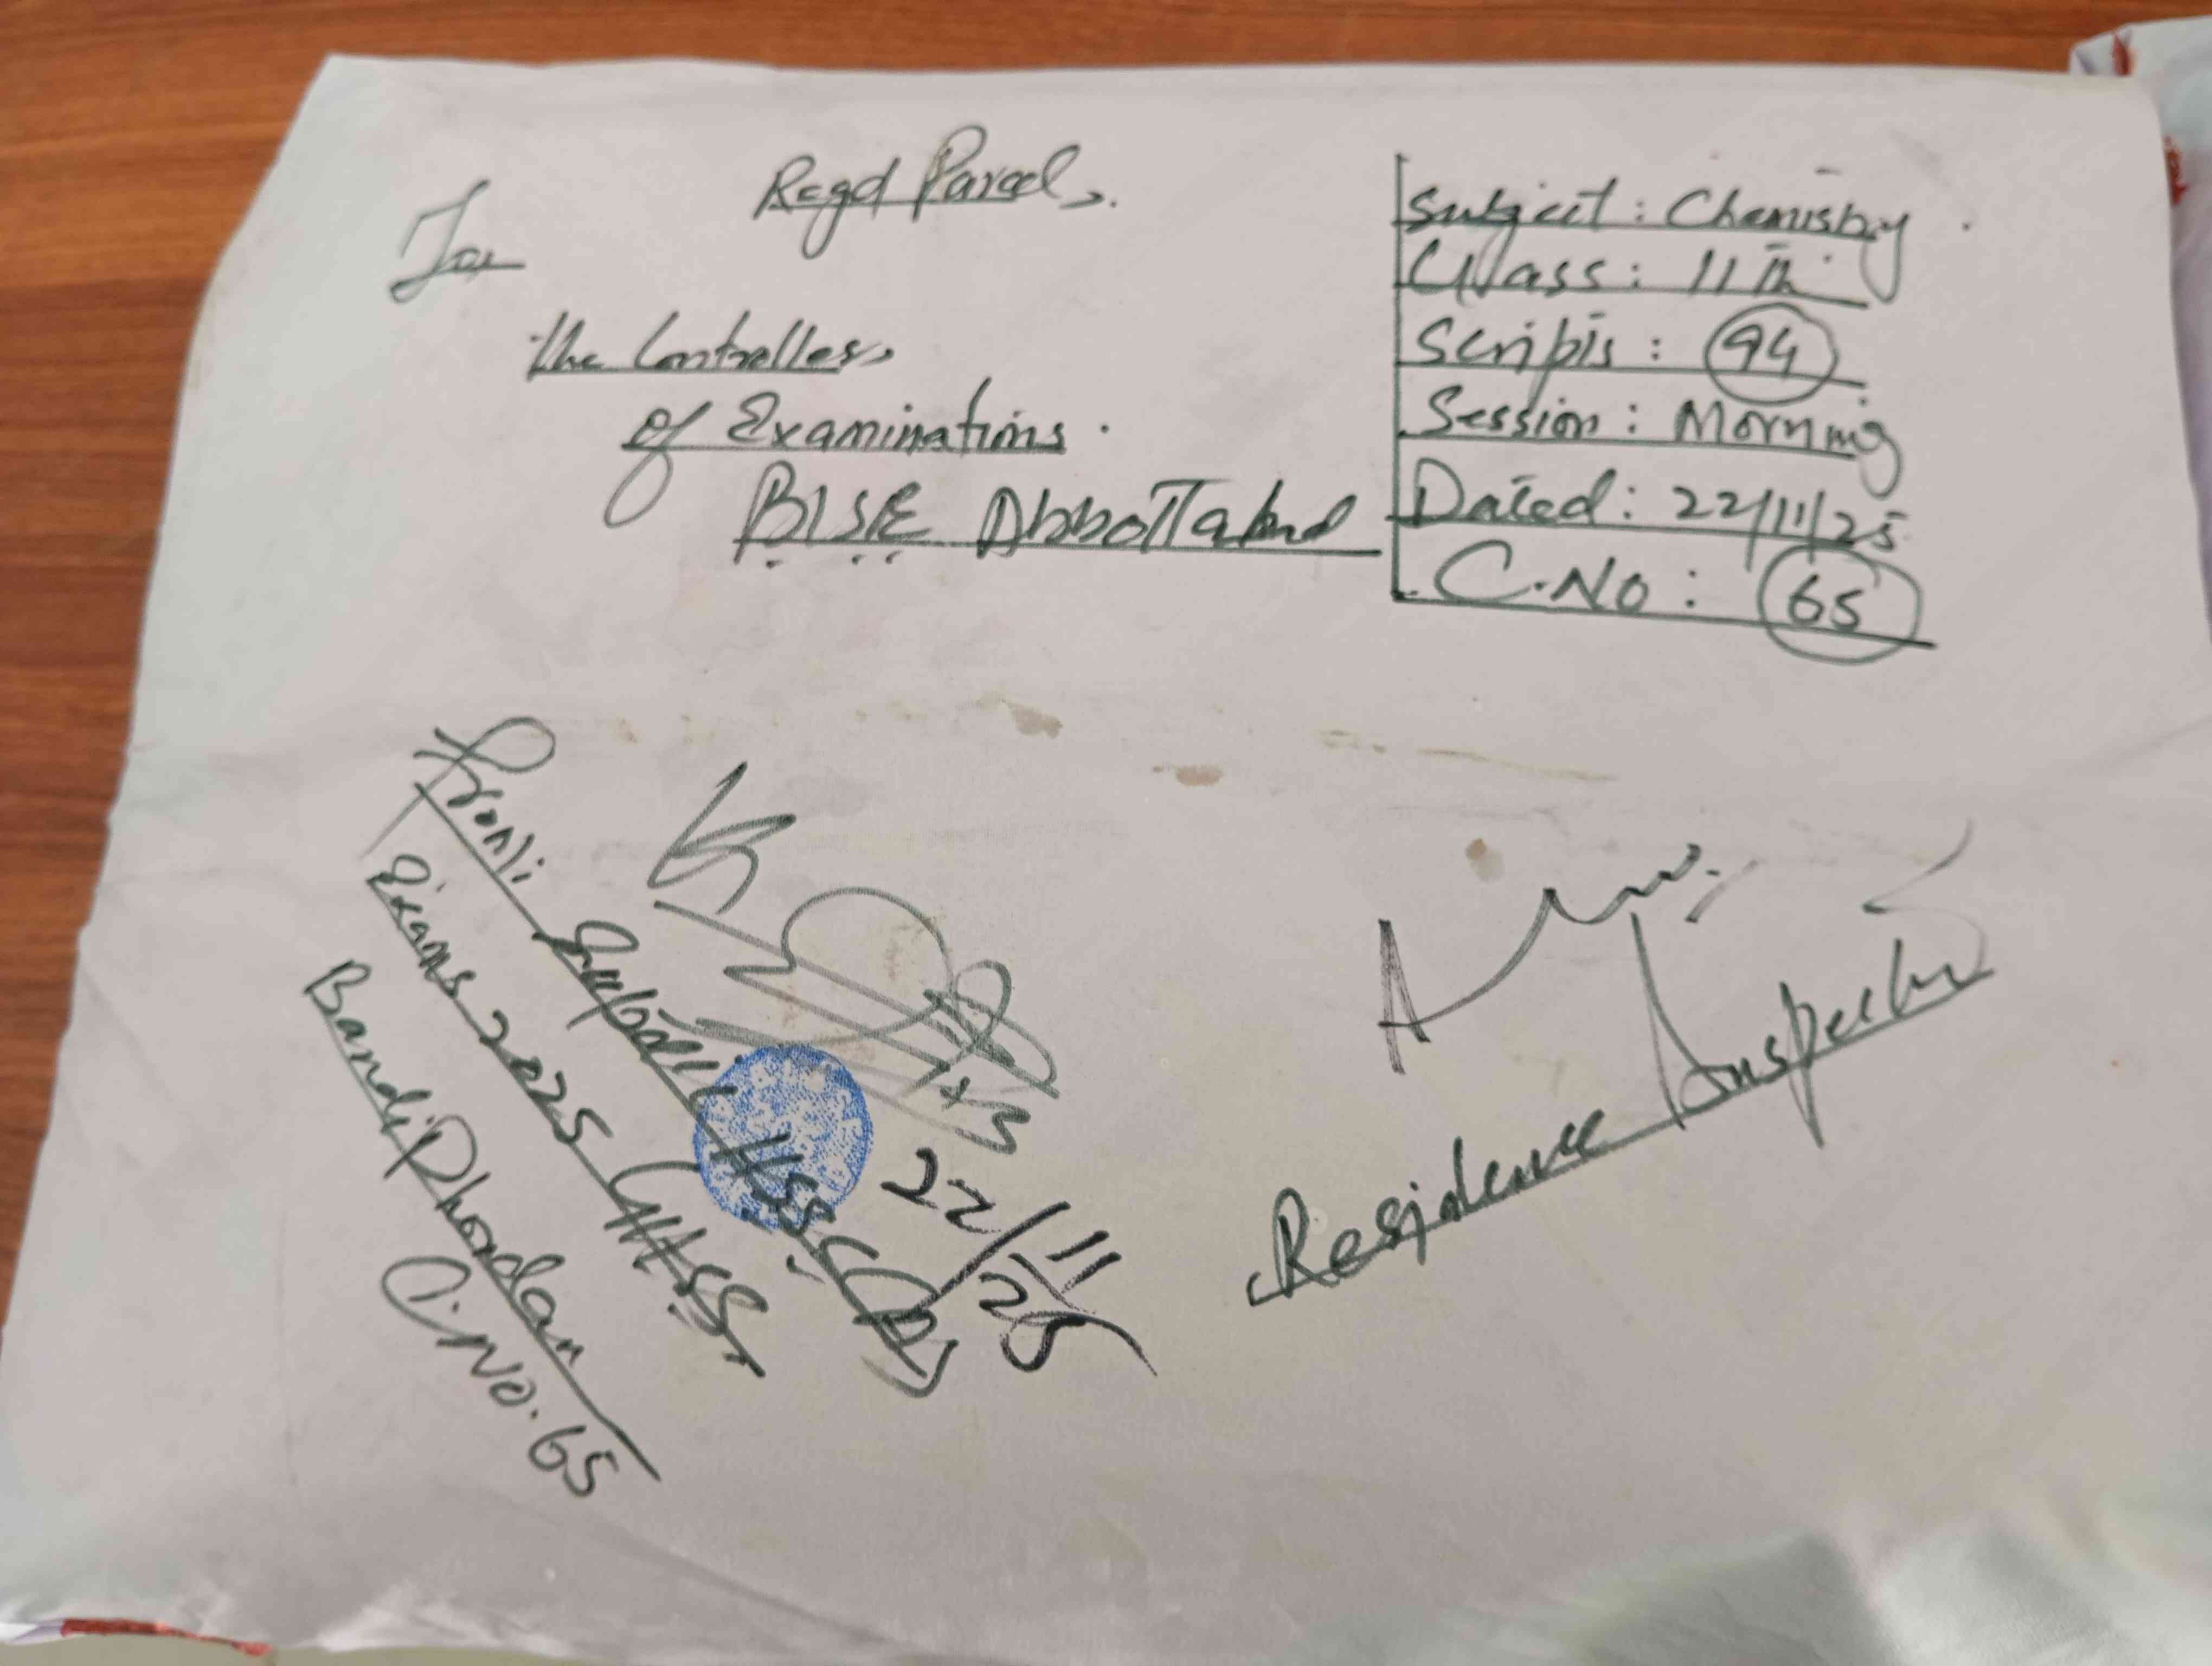 Regd Parcel.
To
The Controller
of Examinations.
BISE Abbottabad
Subject: Chemistry
Class: 11th
Scripts: 94
Session: Morning
Dated: 22/11/25
C.No: 65
From:
HSSC
Exams 2025 GHSS
Bandi Dhundan
C.No. 65
22/11
25
Residence Inspector